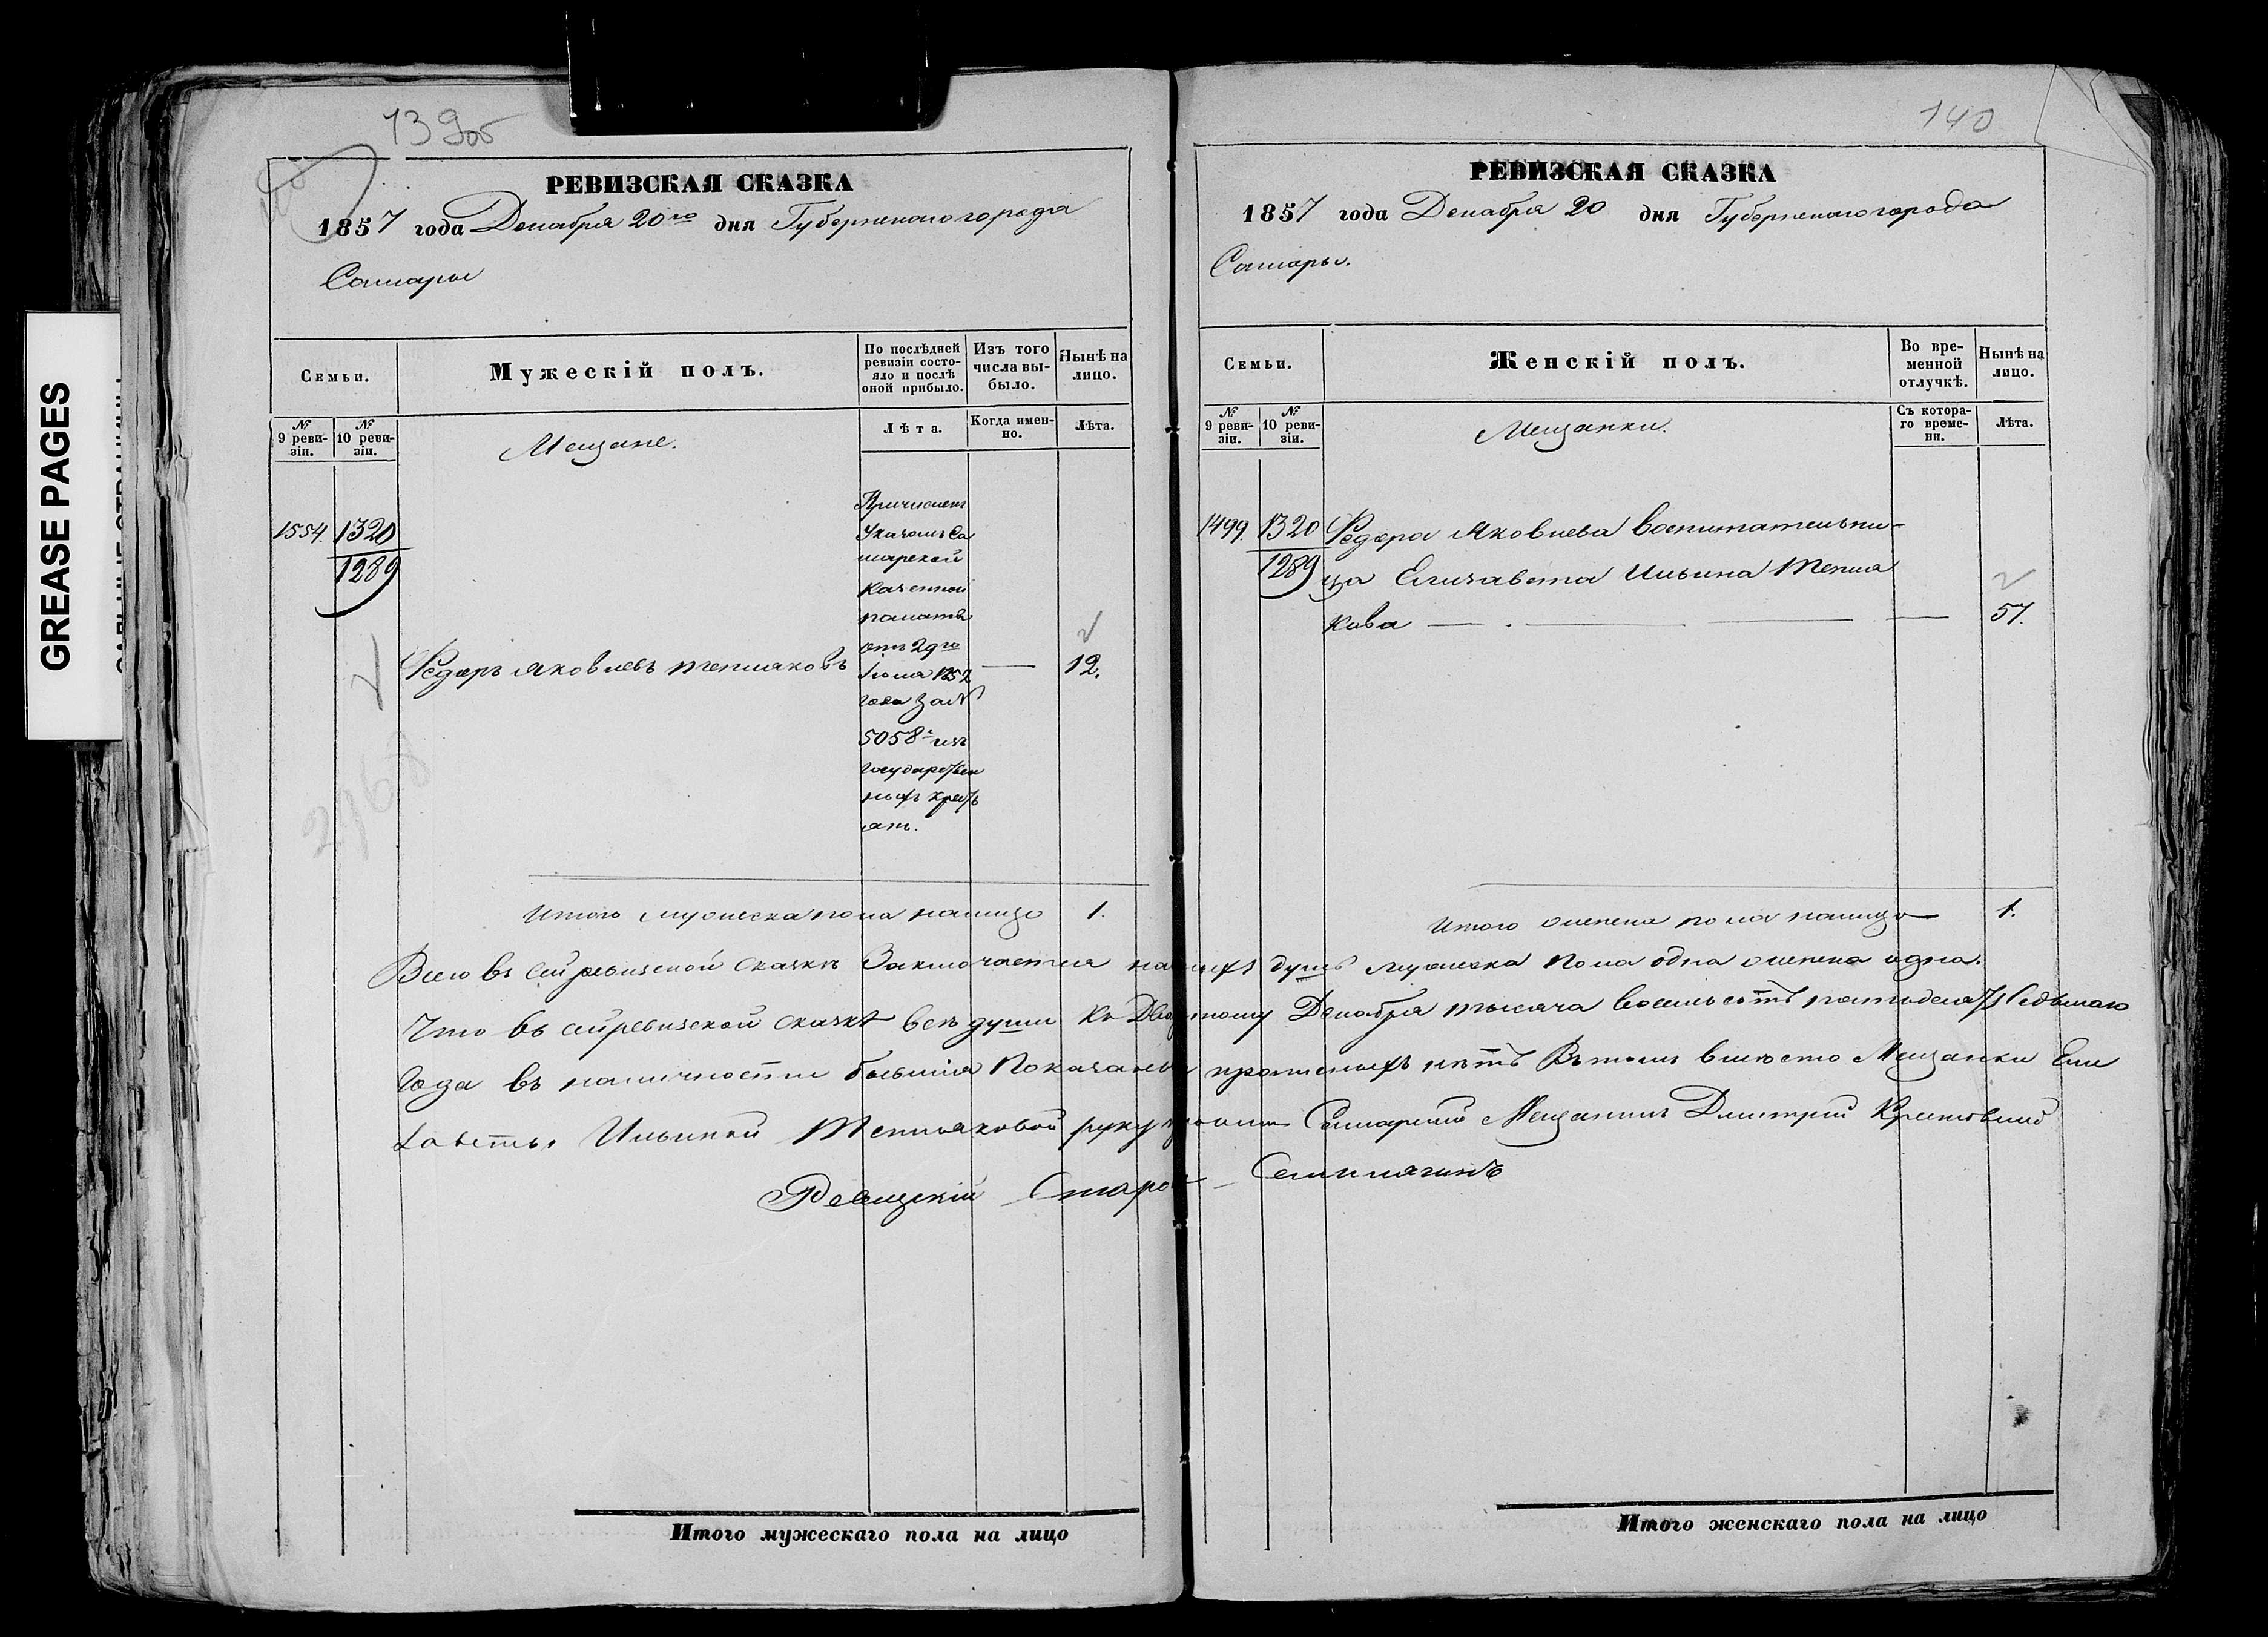 GREASE PAGES
139об
РЕВИЗСКАЯ СКАЗКА
1857 года Декабря 20го дня Губернскаго города
Самары
Семьи.
Мужескій полъ.
По послѣдней ревизіи состо-
яло и послѣ
оной прибыло.
Изъ того
числа вы-
было.
Нынѣ на
лицо.
№ 9 реви-
зіи.
№ 10 реви-
зіи.
Мещане.
Лѣта.
Когда имен-
но.
Лѣта.
1554. 1320
1289
Причисленъ
Указомъ Са
марской
Казенной
палаты
отъ 29го
Іюля 1852
года за №
5058м изъ
Государствен
ныхъ кресть
янъ.
Федоръ Яковлевъ Тепляковъ — 12.
2768
Итого мужеска пола налицо 1.
140
РЕВИЗСКАЯ СКАЗКА
1857 года Декабря 20 дня Губернскаго города
Самары.
Семьи.
Женскій полъ.
Во вре-
менной
отлучкѣ.
Нынѣ на
лицо.
№ 9 реви-
зіи.
№ 10 реви-
зіи.
Мещанки.
Съ котора-
го време-
ни.
Лѣта.
1499. 1320
1289
Федора Яковлева воспитательни-
ца Елизавета Ильина Тепля
кова — 57.
Итого женска пола налицо 1.
Всего въ сей ревизской сказкѣ Заключается душъ мужеска пола одна женска одна.
Что въ сей ревизской сказкѣ всѣ души къ Декабря тысяча восемьсотъ пятьдесятъ седьмаго
Года въ наличности бывшія Показаны прописныхъ нѣтъ Въ томъ вмѣсто Мещанки Ели
заветы Ильиной Тепляковой руку Самарский Мещанинъ Дмитрий
Ревизскій Староста
Итого мужескаго пола на лицо
Итого женскаго пола на лицо